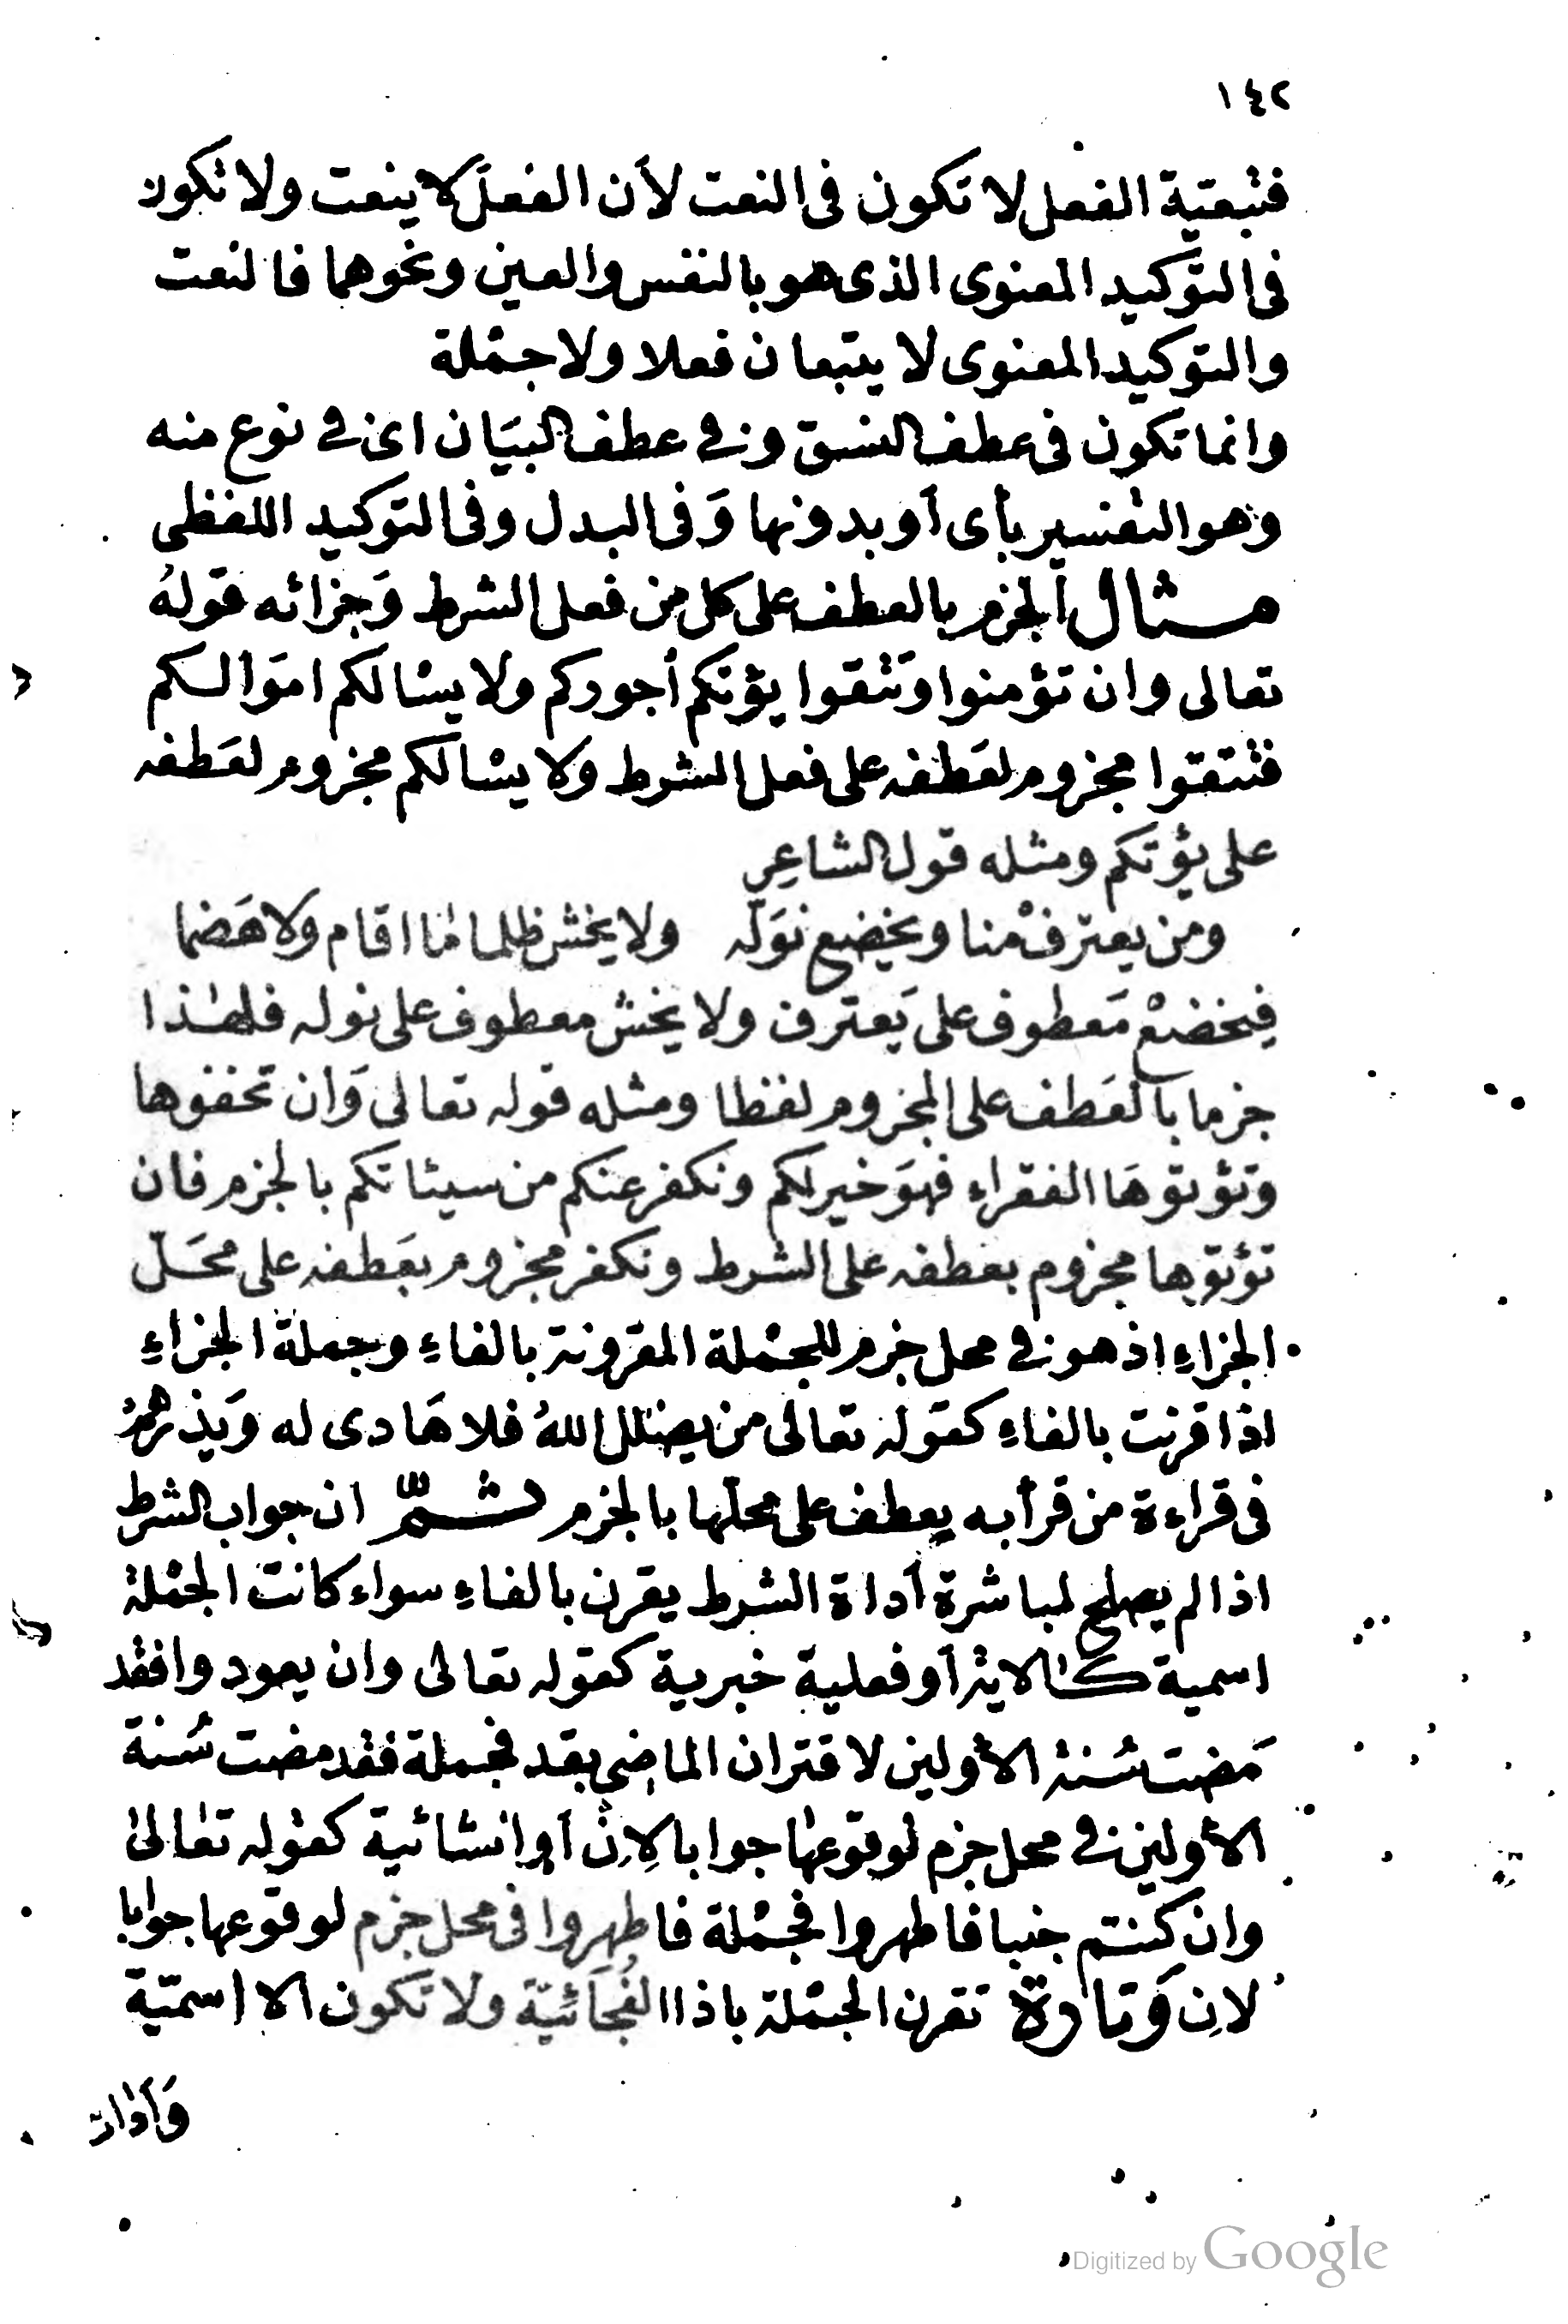 ١٤٢
فتبعيّة الفعل لا تكون فى النعت لأن الفعل لا ينعت ولا تكون
فى التوكيد المعنوى الذى هو بالنفس والعين ونحوهما فالنعت
والتوكيد المعنوى لا يتبعان فعلا ولا جمْلة
وانما تكون فى عطف النسق وفى عطف البيَان اى فى نوع منه
وهو التفسير بأى أو بدونها وَفى البدل وفى التوكيد اللفظى
مثال الجزم بالعطف على كل من فعل الشرط وَجزائه قولهُ
تعالى وان تؤمنوا وتتقوا يؤتكم أجوركم ولا يسْالكم اموَالكم
فتتقوا مجزوم لعَطفه على فعل الشرط ولا يسْالكم مجزوم لعَطفه
على يؤتكم ومثله قول الشاعِر
ومن يعترفْ منا ويخضع نوَله ولا يخش ظلما مٰا اقام ولا هَضما
فيخضعْ مَعطوف على يَعترف ولا يخش معطوف على نوله فلهٰذا
جزما بالعَطف على المجزوم لفظا ومثله قوله تعالى وَان تخفوها
وتؤتوهَا الفقراء فهوَ خير لكم ونكفر عنكم من سيئاتكم بالجزم فان
تؤتوها مجزوم بعطفه على الشرط ونكفر مجزوم بعَطفه على محَلّ
الجزاءِ اذ هو فى محل جزم للجمْلة المقرونة بالفاءِ وجملة الجزاءِ
اذا قرنت بالفاءِ كقوله تعالى من يضلل اللهُ فلا هَادى له وَيذرهمْ
فى قراءة من قرأ به يعطف على محلّها بالجزم ثــمّ ان جواب الشرط
اذا لم يصلح لمباشرة أداة الشرط يقرن بالفاءِ سواء كانت الجمْلة
اسمية كالاية أو فعلية خبرية كقوله تعالى وان يعودوا فقد
مَضت سُنة الأولين لاقتران الماضى بقد فجملة فقد مضت سُنة
الأولين فى محل جزم لوقوعهٰا جوابا لاِنْ أو انشائية كقوله تعٰالىٰ
وان كنتم جنبا فاطهروا فجمْلة فاطهروا فى محل جزم لوقوعها جوابا
لاِن وَتارة تقرن الجمْلة باذا الفُجَائيّة ولا تكون الا اسميّة
وَأداة
Digitized by Google